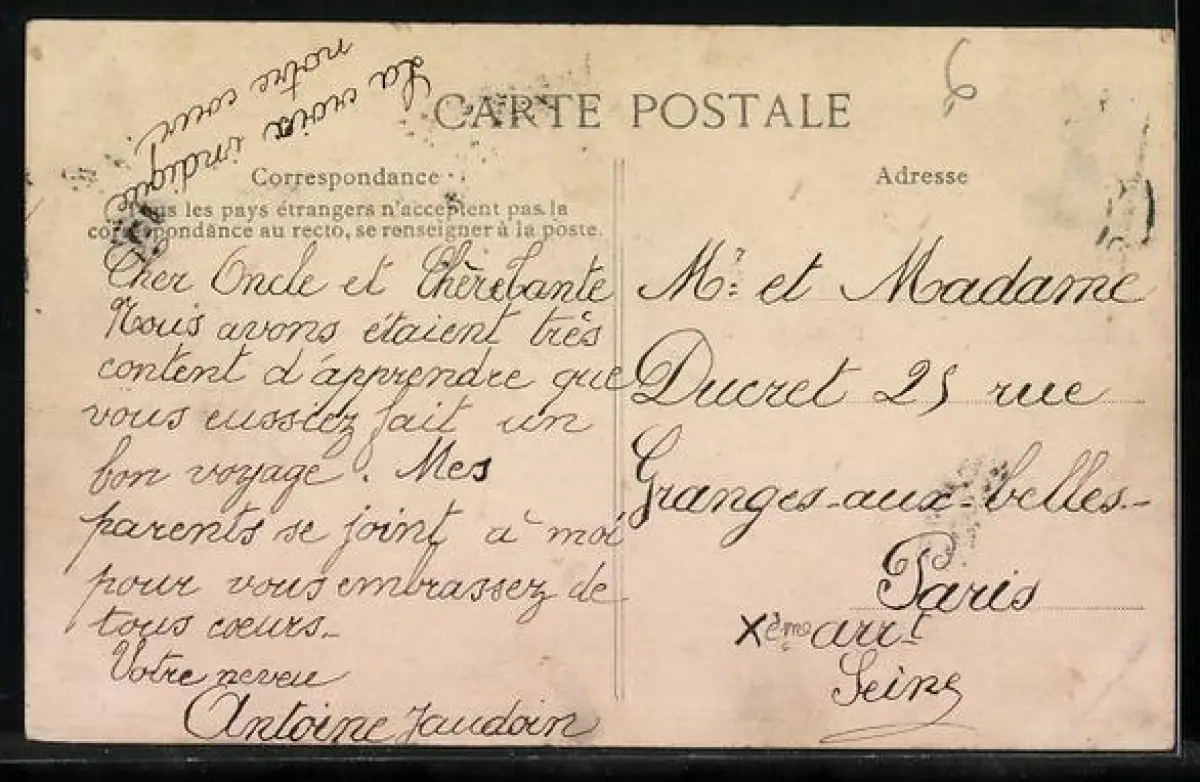 La croix indique
notre cour.
CARTE POSTALE
6
Correspondance
Tous les pays étrangers n'acceptent pas la
correspondance au recto, se renseigner à la poste.
Cher Oncle et Chère tante
Nous avons étaient très
content d'apprendre que
vous eussiez fait un
bon voyage. Mes
parents se joint à moi
pour vous embrassez de
tous cœurs_
Votre neveu
Antoine Jaudoin
Adresse
Mr et Madame
Ducret 25 rue
Granges-aux-belles-
Paris
Xème arrt
Seine